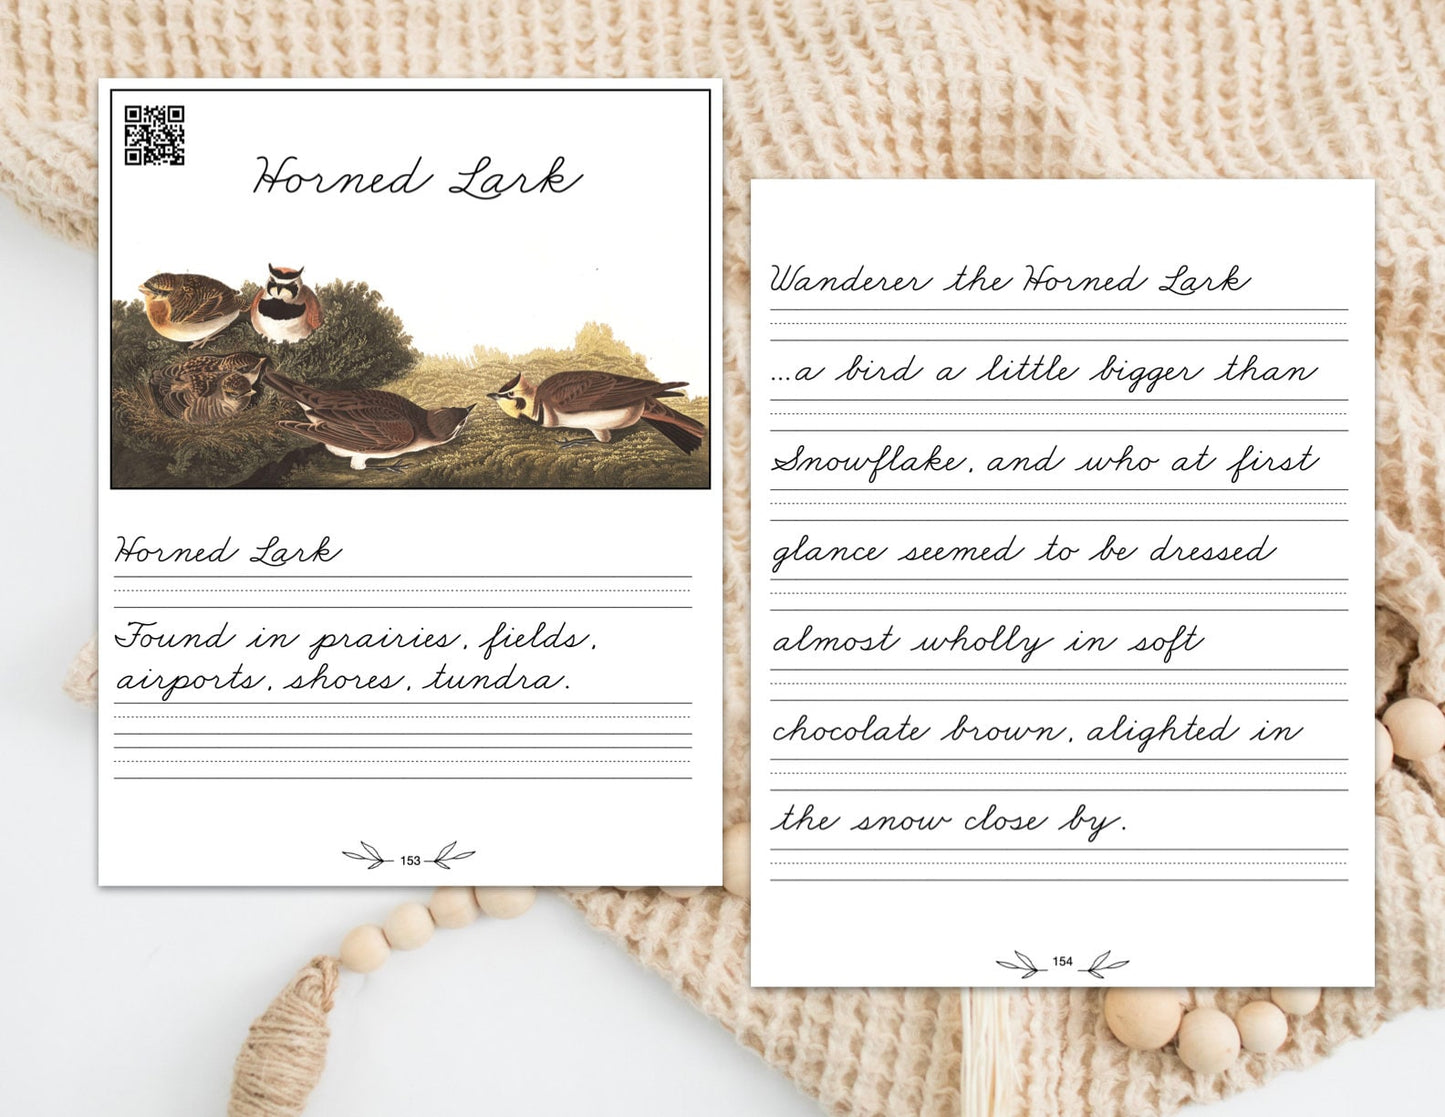 Horned Lark
Horned Lark
Found in prairies, fields,
airports, shores, tundra.
153
Wanderer the Horned Lark
...a bird a little bigger than
Snowflake, and who at first
glance seemed to be dressed
almost wholly in soft
chocolate brown, alighted in
the snow close by.
154